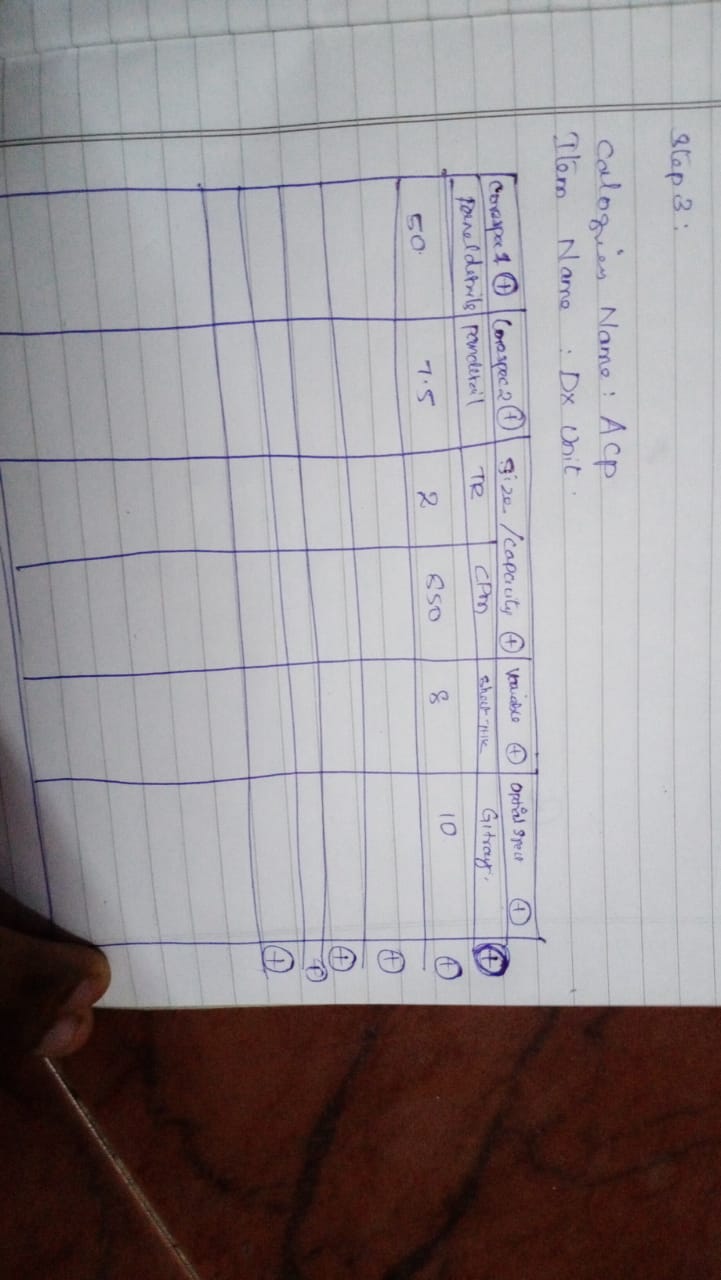 Step 3:
Name: Acp
Item Name : Dx Unit.
Corespec 1 + Corespec 2 + Size / capacity + Variable + Optional Spect +
Paneldetails pandetail TR CFM Sheet THK GI tray. +
50 7.5 2 650 8 10 +
+
+
+
+